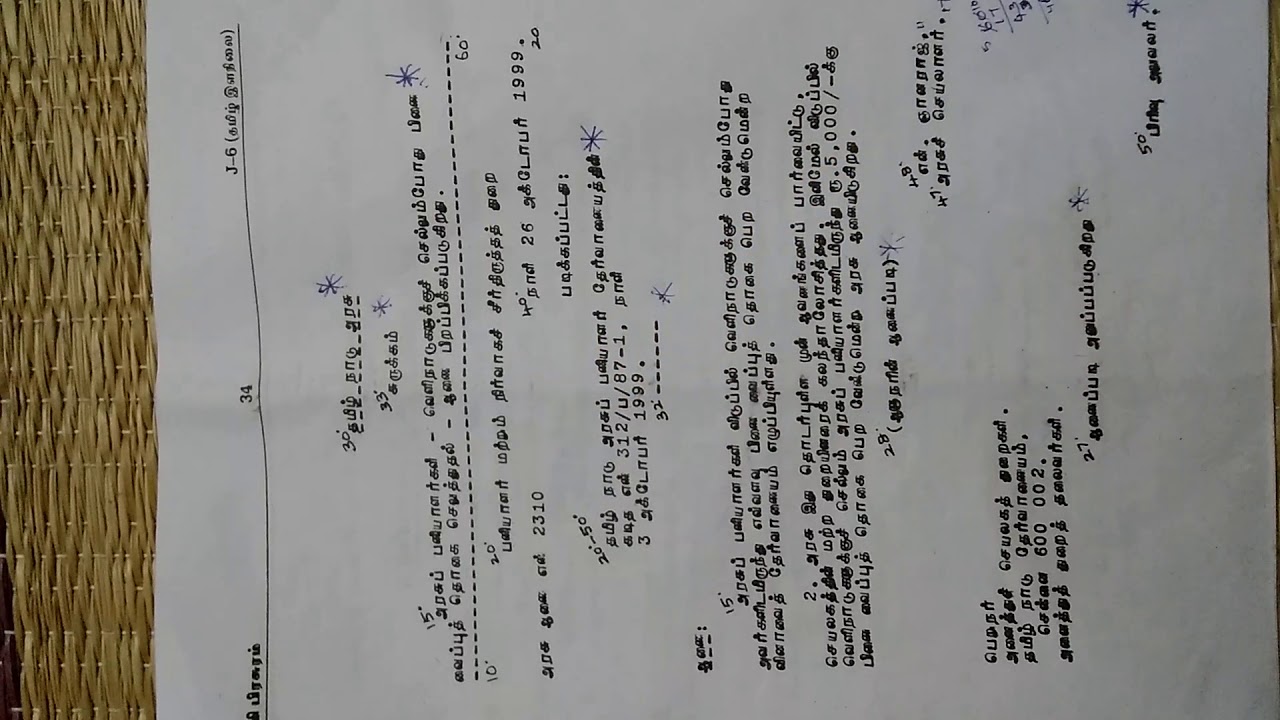 பிரசுரம் 34 J-6 (தமிழ் இளநிலை)
30° தமிழ் நாடு அரசு *
33° சுருக்கம் *
15° அரசுப் பணியாளர்கள் - வெளிநாடுகளுக்குச் செல்லும்போது பிணை *
வைப்புத் தொகை செலுத்துதல் - ஆணை பிறப்பிக்கப்படுகிறது.
10° 60°
20° பணியாளர் மற்றும் நிர்வாகச் சீர்திருத்தத் துறை
அரசு ஆணை எண் 2310 40° நாள் 26 அக்டோபர் 1999.
20
படிக்கப்பட்டது:
20°-50°
தமிழ் நாடு அரசுப் பணியாளர் தேர்வாணையத்தின் *
கடித எண் 312/ப/87-1, நாள்
3 அக்டோபர் 1999.
32° ------- *
ஆணை:
15° அரசுப் பணியாளர்கள் விடுப்பில் வெளிநாடுகளுக்குச் செல்லும்போது
அவர்களிடமிருந்து எவ்வளவு பிணை வைப்புத் தொகை பெற வேண்டுமென்ற
வினாவைத் தேர்வாணையம் எழுப்பியுள்ளது.
2. அரசு இது தொடர்புள்ள முன் ஆவணங்களைப் பார்வையிட்டு,
செயலகத்தின் மற்ற துறையினரைக் கலந்தாலோசித்தது. இனிமேல் விடுப்பில்
வெளிநாடுகளுக்குச் செல்லும் அரசுப் பணியாளர்களிடமிருந்து ரூ.5,000/-க்கு
பிணை வைப்புத் தொகை பெற வேண்டுமென்று அரசு ஆணையிடுகிறது.
28° (ஆளுநரின் ஆணைப்படி) *
48° என். ஞானராஜ்,
47° அரசுச் செயலாளர்.
பெறுநர்
அனைத்துச் செயலகத் துறைகள்.
தமிழ் நாடு தேர்வாணையம்,
சென்னை 600 002.
அனைத்துத் துறைத் தலைவர்கள்.
27° ஆணைப்படி அனுப்பப்படுகிறது *
50° பிரிவு அலுவலர். *